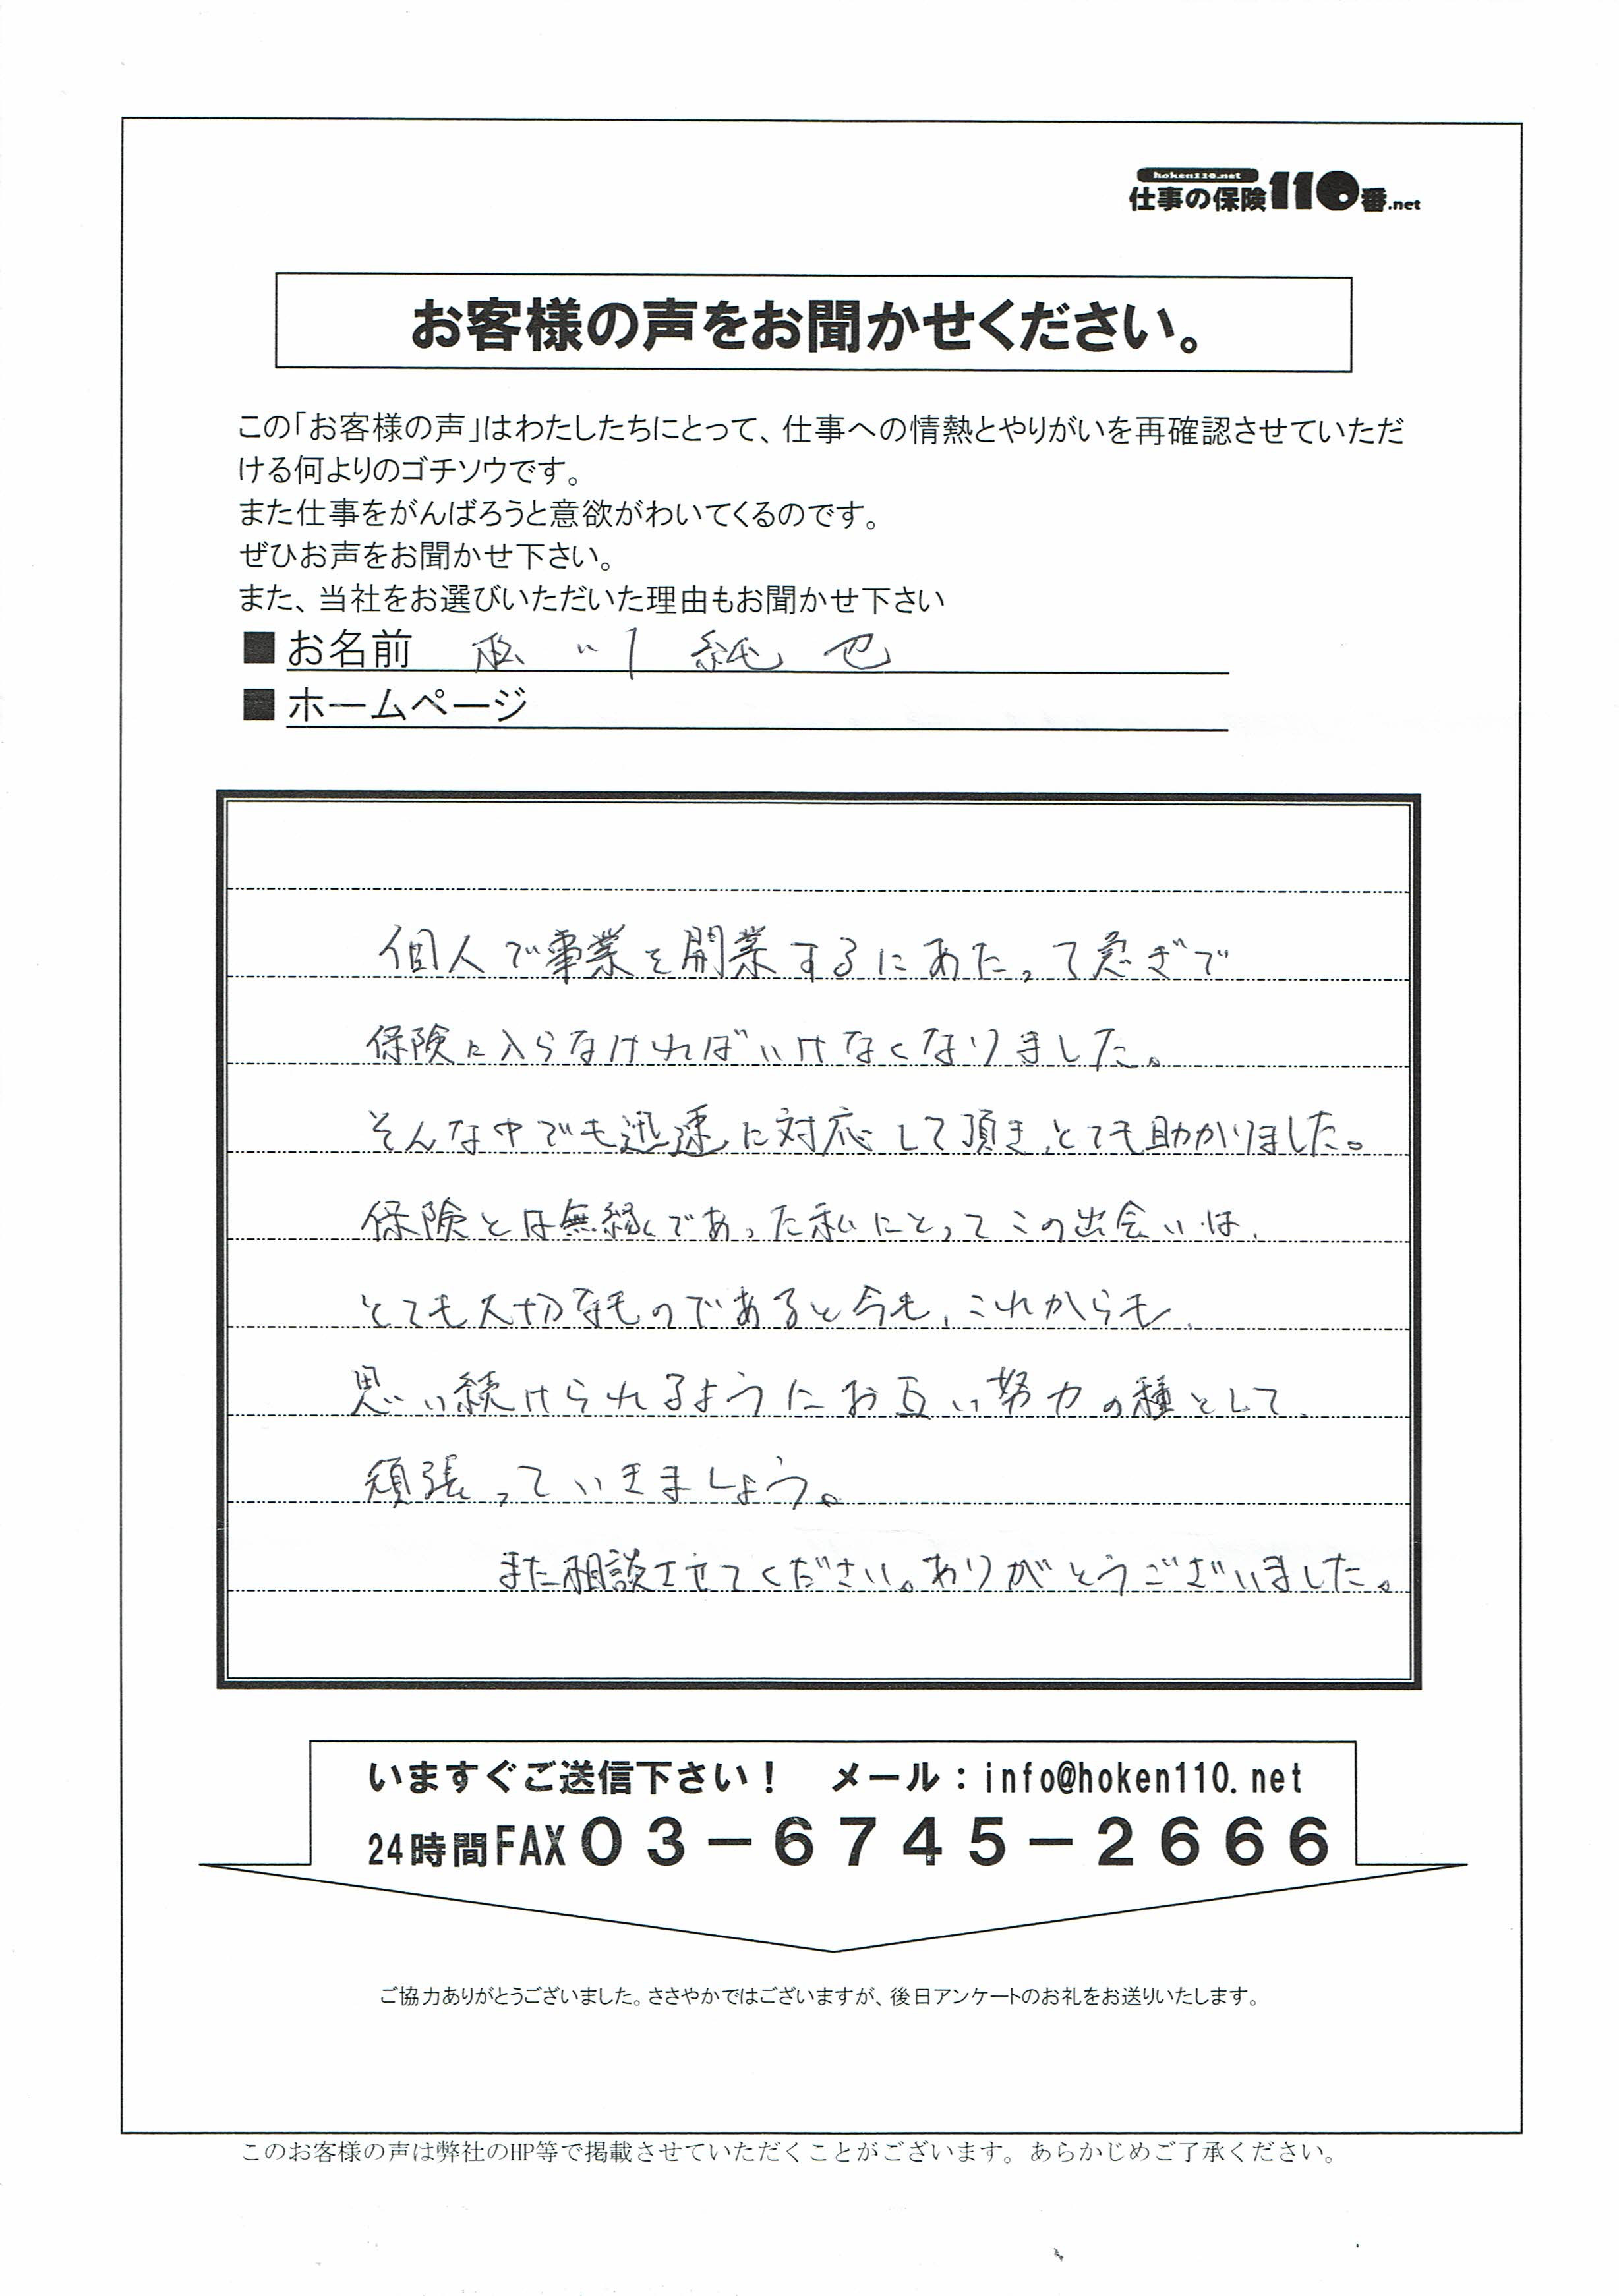 hoken110.net
仕事の保険110番.net
お客様の声をお聞かせください。
この「お客様の声」はわたしたちにとって、仕事への情熱とやりがいを再確認させていただ
ける何よりのゴチソウです。
また仕事をがんばろうと意欲がわいてくるのです。
ぜひお声をお聞かせ下さい。
また、当社をお選びいただいた理由もお聞かせ下さい
■お名前
■ホームページ
個人で事業を開業するにあたって急ぎで
保険に入らなければいけなくなりました。
そんな中でも迅速に対応して頂き、とても助かりました。
保険とは無縁であった私にとってこの出会いは、
とても大切なものであると今も、これからも、
思い続けられるようにお互い努力の種として、
頑張っていきましょう。
また相談させてください。ありがとうございました。
いますぐご送信下さい！ メール：info@hoken110.net
24時間FAX03－6745－2666
ご協力ありがとうございました。ささやかではございますが、後日アンケートのお礼をお送りいたします。
このお客様の声は弊社のHP等で掲載させていただくことがございます。あらかじめご了承ください。